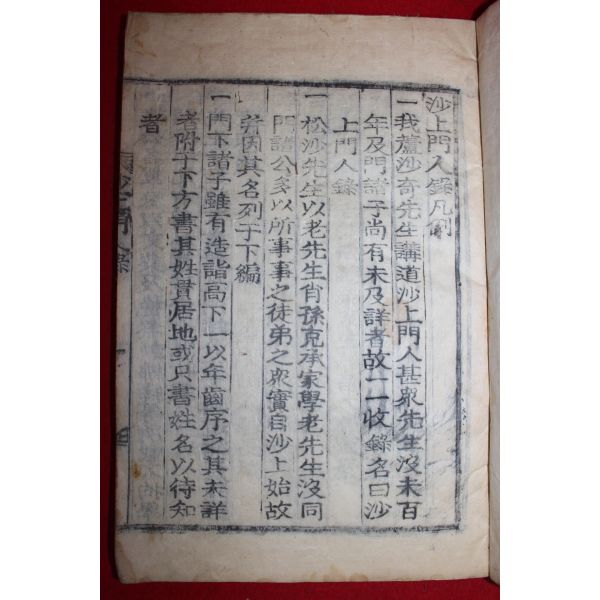 沙上門人錄凡例
一我蘆沙奇先生講道沙上門人甚衆先生沒未百
年及門諸子尚有未及詳者故一一收錄名曰沙
上門人錄
一松沙先生以老先生肖孫克承家學老先生沒同
門諸公多以所事事之徒弟之衆實自沙上始故
幷因其名列于下編
一門下諸子雖有造詣高下一以年齒序之其未詳
者附于下方書其姓貫居地或只書姓名以待知
者